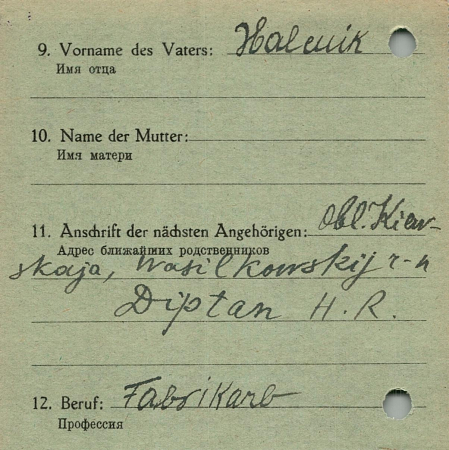 9. Vorname des Vaters: Halenik
Имя отца
10. Name der Mutter:
Имя матери
11. Anschrift der nächsten Angehörigen: Obl. Kiew-
Адрес ближайших родственников
skaja, Wasilkowskij r-n
Diptan H. R.
12. Beruf: Fabrikarb
Профессия